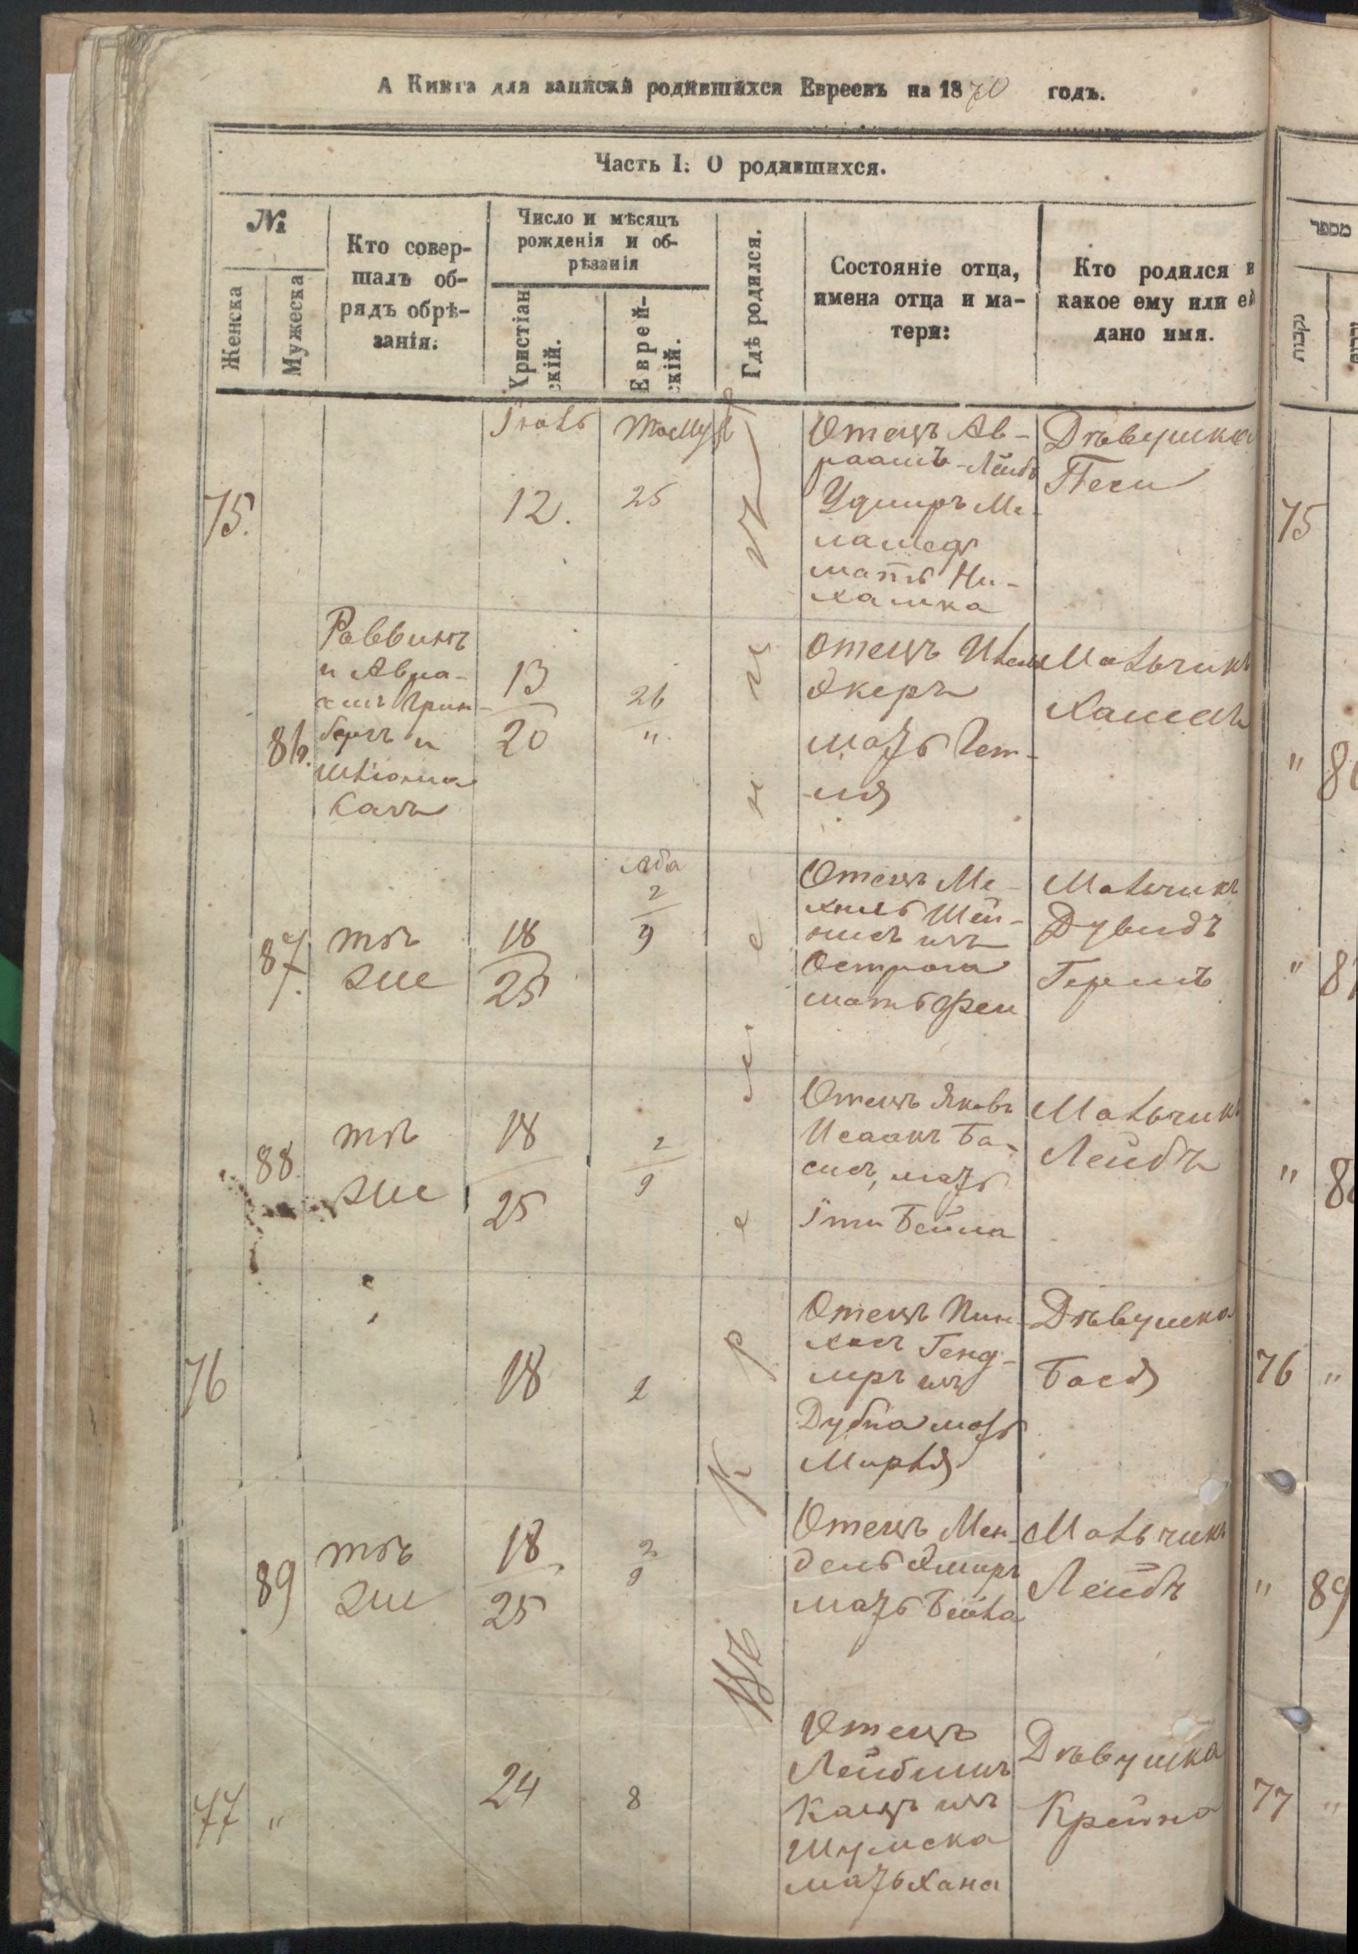 А Книга для записки родившихся Евреевъ на 1870 годъ.
Часть I. О родившихся.
№
Женска
Мужеска
Кто совер-
шалъ об-
рядъ обрѣ-
занія.
Число и мѣсяцъ
рожденія и об-
рѣзанія
Христіан
скій.
Еврей-
скій.
Гдѣ родился.
Состояніе отца,
имена отца и ма-
тери:
Кто родился и
какое ему или ей
дано имя.
מספר
נקבות
Въ Кременцѣ
75.
Іюль
12.
Тамуз
25
Отецъ Ав-
раамъ-Лейб
Удлиръ Ме-
ламедъ
мать Ни-
хамка
Дѣвушка
Песи
75
86.
Раввинъ
и Авра-
амъ Грин-
бергъ и
Шліома
Кацъ
13
20
26
"
Отецъ
Акеръ
мать Гит-
ля
Мальчикъ
Хаимъ
"
87.
тѣ
же
18
25
Аба
2
9
Отецъ Ме-
хиль Шей-
нисъ изъ
Острога
мать Фейга
Мальчикъ
Дувидъ
Гершъ
"
88
тѣ
же
18
25
2
9
Отецъ Яковъ
Исаакъ Ба-
сисъ, мать
Іти Бейла
Мальчикъ
Лейбъ
"
76
18
2
Отецъ Пин-
хасъ Генд-
лиръ изъ
Дубна мать
Мирля
Дѣвушка
Бася
76 "
89
тѣ
же
18
25
2
9
Отецъ Мен-
дель
мать Бейла
Мальчикъ
Лейбъ
" 89
77 "
24
8
Отецъ
Лейбишъ
Кацъ изъ
Шумска
мать Хана
Дѣвушка
Крейна
77 "